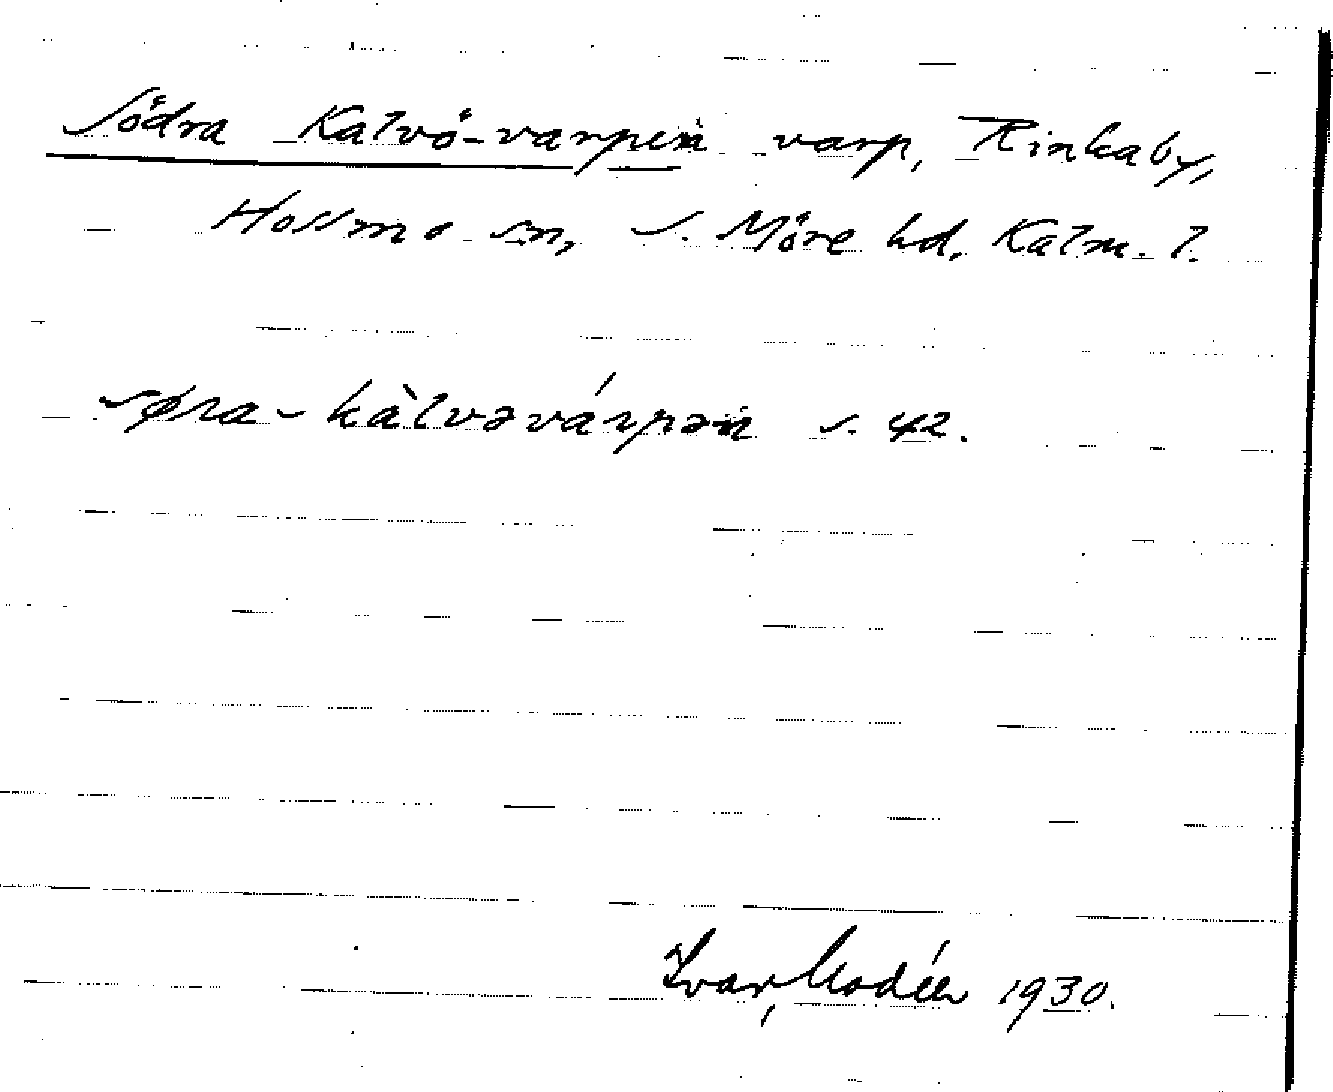 Södra Kalvö-varpen varp, Rinkaby,
Hossmo sn, S. Möre hd, Kalm. l.
søra- kàlvəvárpən s. 42.
Ivar Modéer 1930.